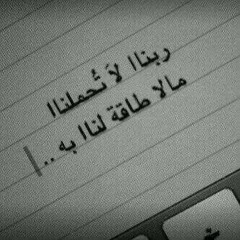 ربناا لاَ تُحملناا
مالا طاقة لناا به ..